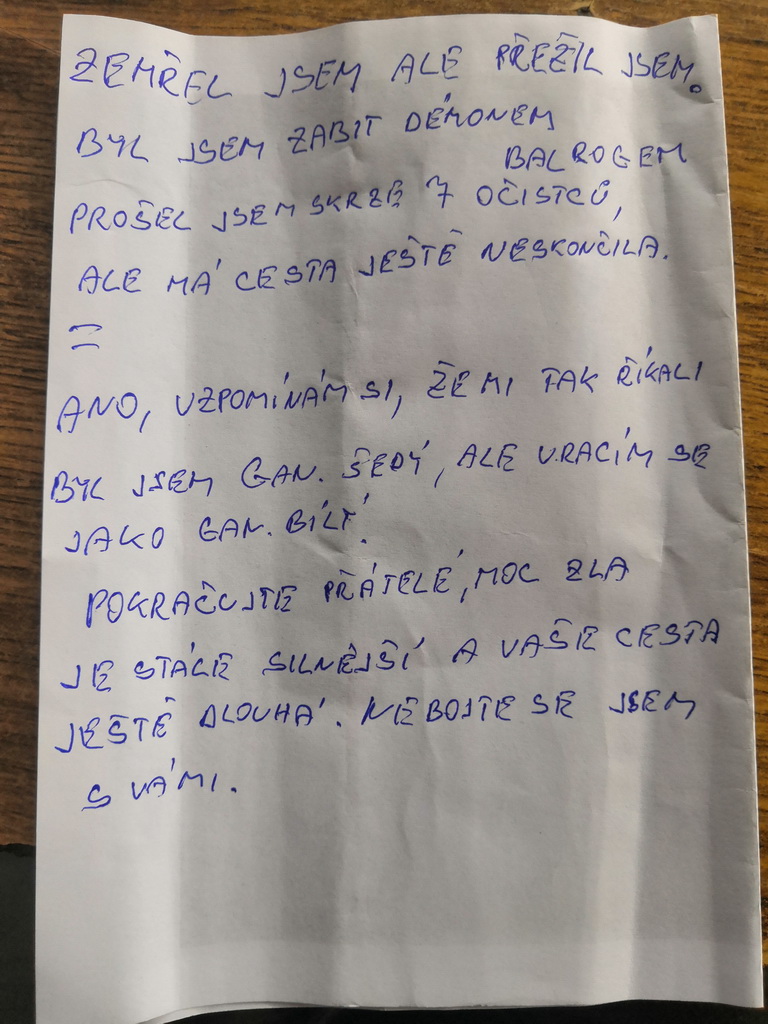 ZEMŘEL JSEM ALE PŘEŽIL JSEM.
BYL JSEM ZABIT DÉMONEM
BALROGEM
PROŠEL JSEM SKRZE 7 OČISTCŮ,
ALE MÁ CESTA JEŠTĚ NESKONČILA.
=
ANO, VZPOMÍNÁM SI, ŽE MI TAK ŘÍKALI
BYL JSEM GAN. ŠEDÝ, ALE VRACÍM SE
JAKO GAN. BÍLÝ.
POKRAČUJTE PŘÁTELÉ, MOC ZLA
JE STÁLE SILNĚJŠÍ A VAŠE CESTA
JEŠTĚ DLOUHÁ. NEBOJTE SE JSEM
S VÁMI.